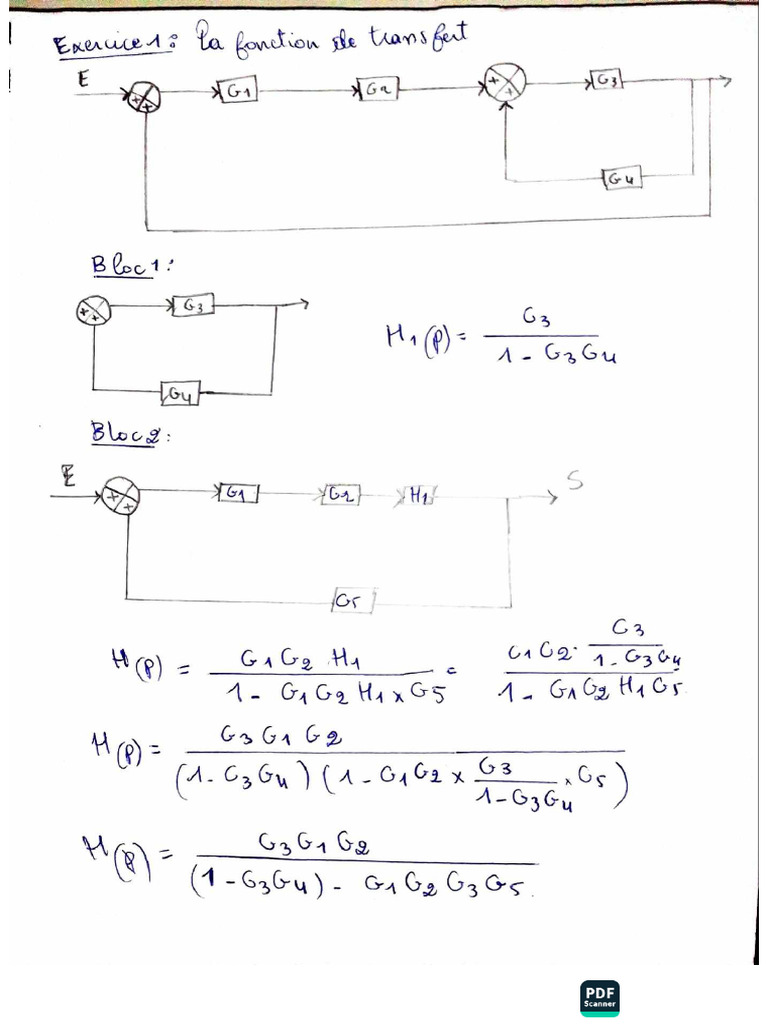 Exercice 1 : La fonction de transfert
E
G1 G2 G3
G4
Bloc 1 :
G3
H1(p) = G3 / (1 - G3G4)
G4
Bloc 2 :
E G1 G2 H1 S
G5
H(p) = G1G2 H1 / (1 - G1G2H1 × G5) = (G1G2 · G3 / (1 - G3G4)) / (1 - G1G2H1G5)
H(p) = G3G1G2 / ((1 - G3G4)(1 - G1G2 × G3 / (1 - G3G4) × G5))
H(p) = G3G1G2 / ((1 - G3G4) - G1G2G3G5)
PDF
Scanner